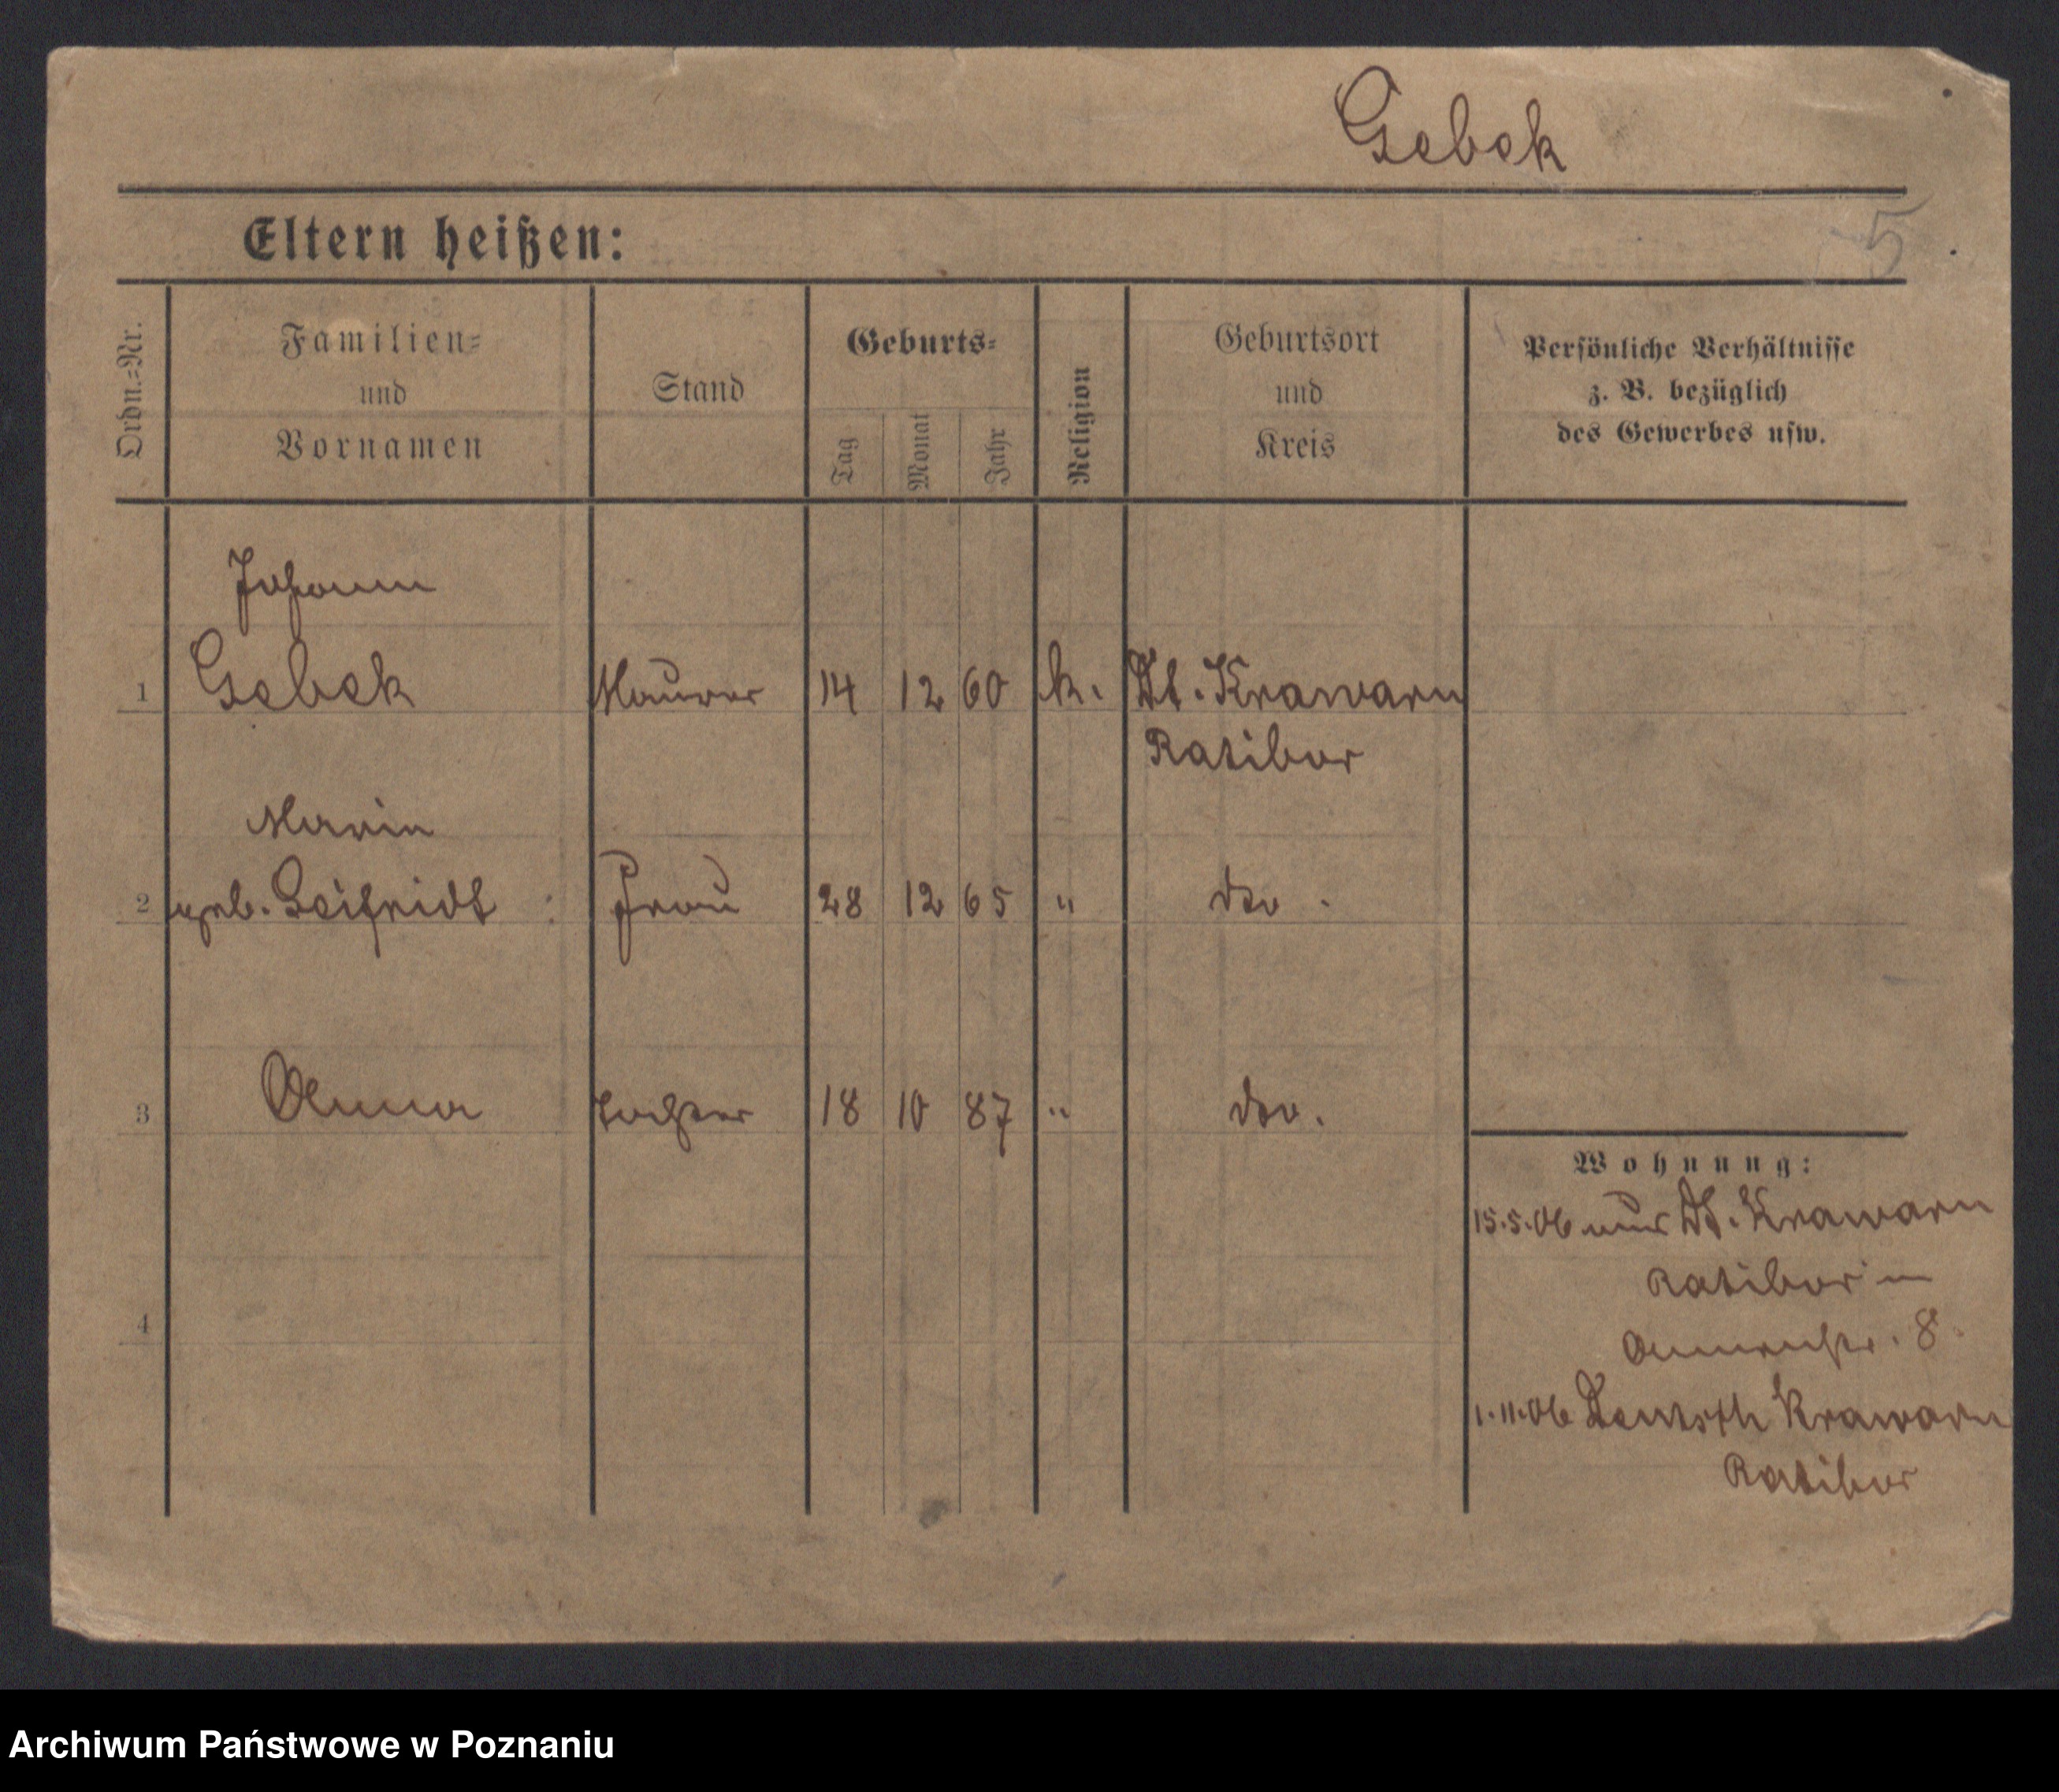 Gebek
5
Eltern heißen:
Ordn.=Nr.
Familien=
und
Vornamen
Stand
Geburts=
Tag
Monat
Jahr
Religion
Geburtsort
und
Kreis
Persönliche Verhältnisse
z. B. bezüglich
des Gewerbes usw.
Johann
1 Gebek Maurer 14 12 60 k. Dt. Krawarn
Ratibor
Maria
2 geb. Seifridt : Frau 28 12 65 " dto.
3 Anna Tochter 18 10 87 " dto.
4
Wohnung:
15.5.06 aus Dt. Krawarn
Ratibor in
Annenstr. 8
1.11.06 Deutsch Krawarn
Ratibor
Archiwum Państwowe w Poznaniu